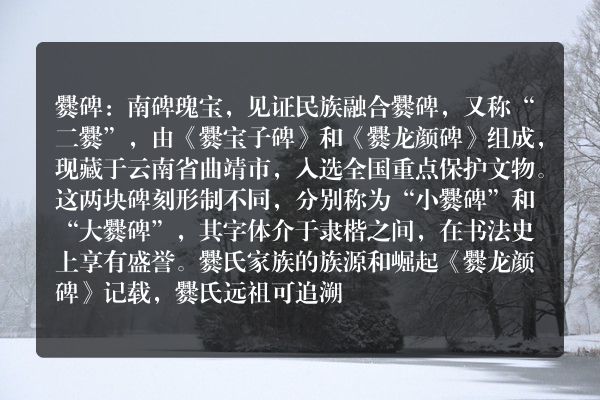 爨碑：南碑瑰宝，见证民族融合爨碑，又称“
二爨”，由《爨宝子碑》和《爨龙颜碑》组成，
现藏于云南省曲靖市，入选全国重点保护文物。
这两块碑刻形制不同，分别称为“小爨碑”和
“大爨碑”，其字体介于隶楷之间，在书法史
上享有盛誉。爨氏家族的族源和崛起《爨龙颜
碑》记载，爨氏远祖可追溯